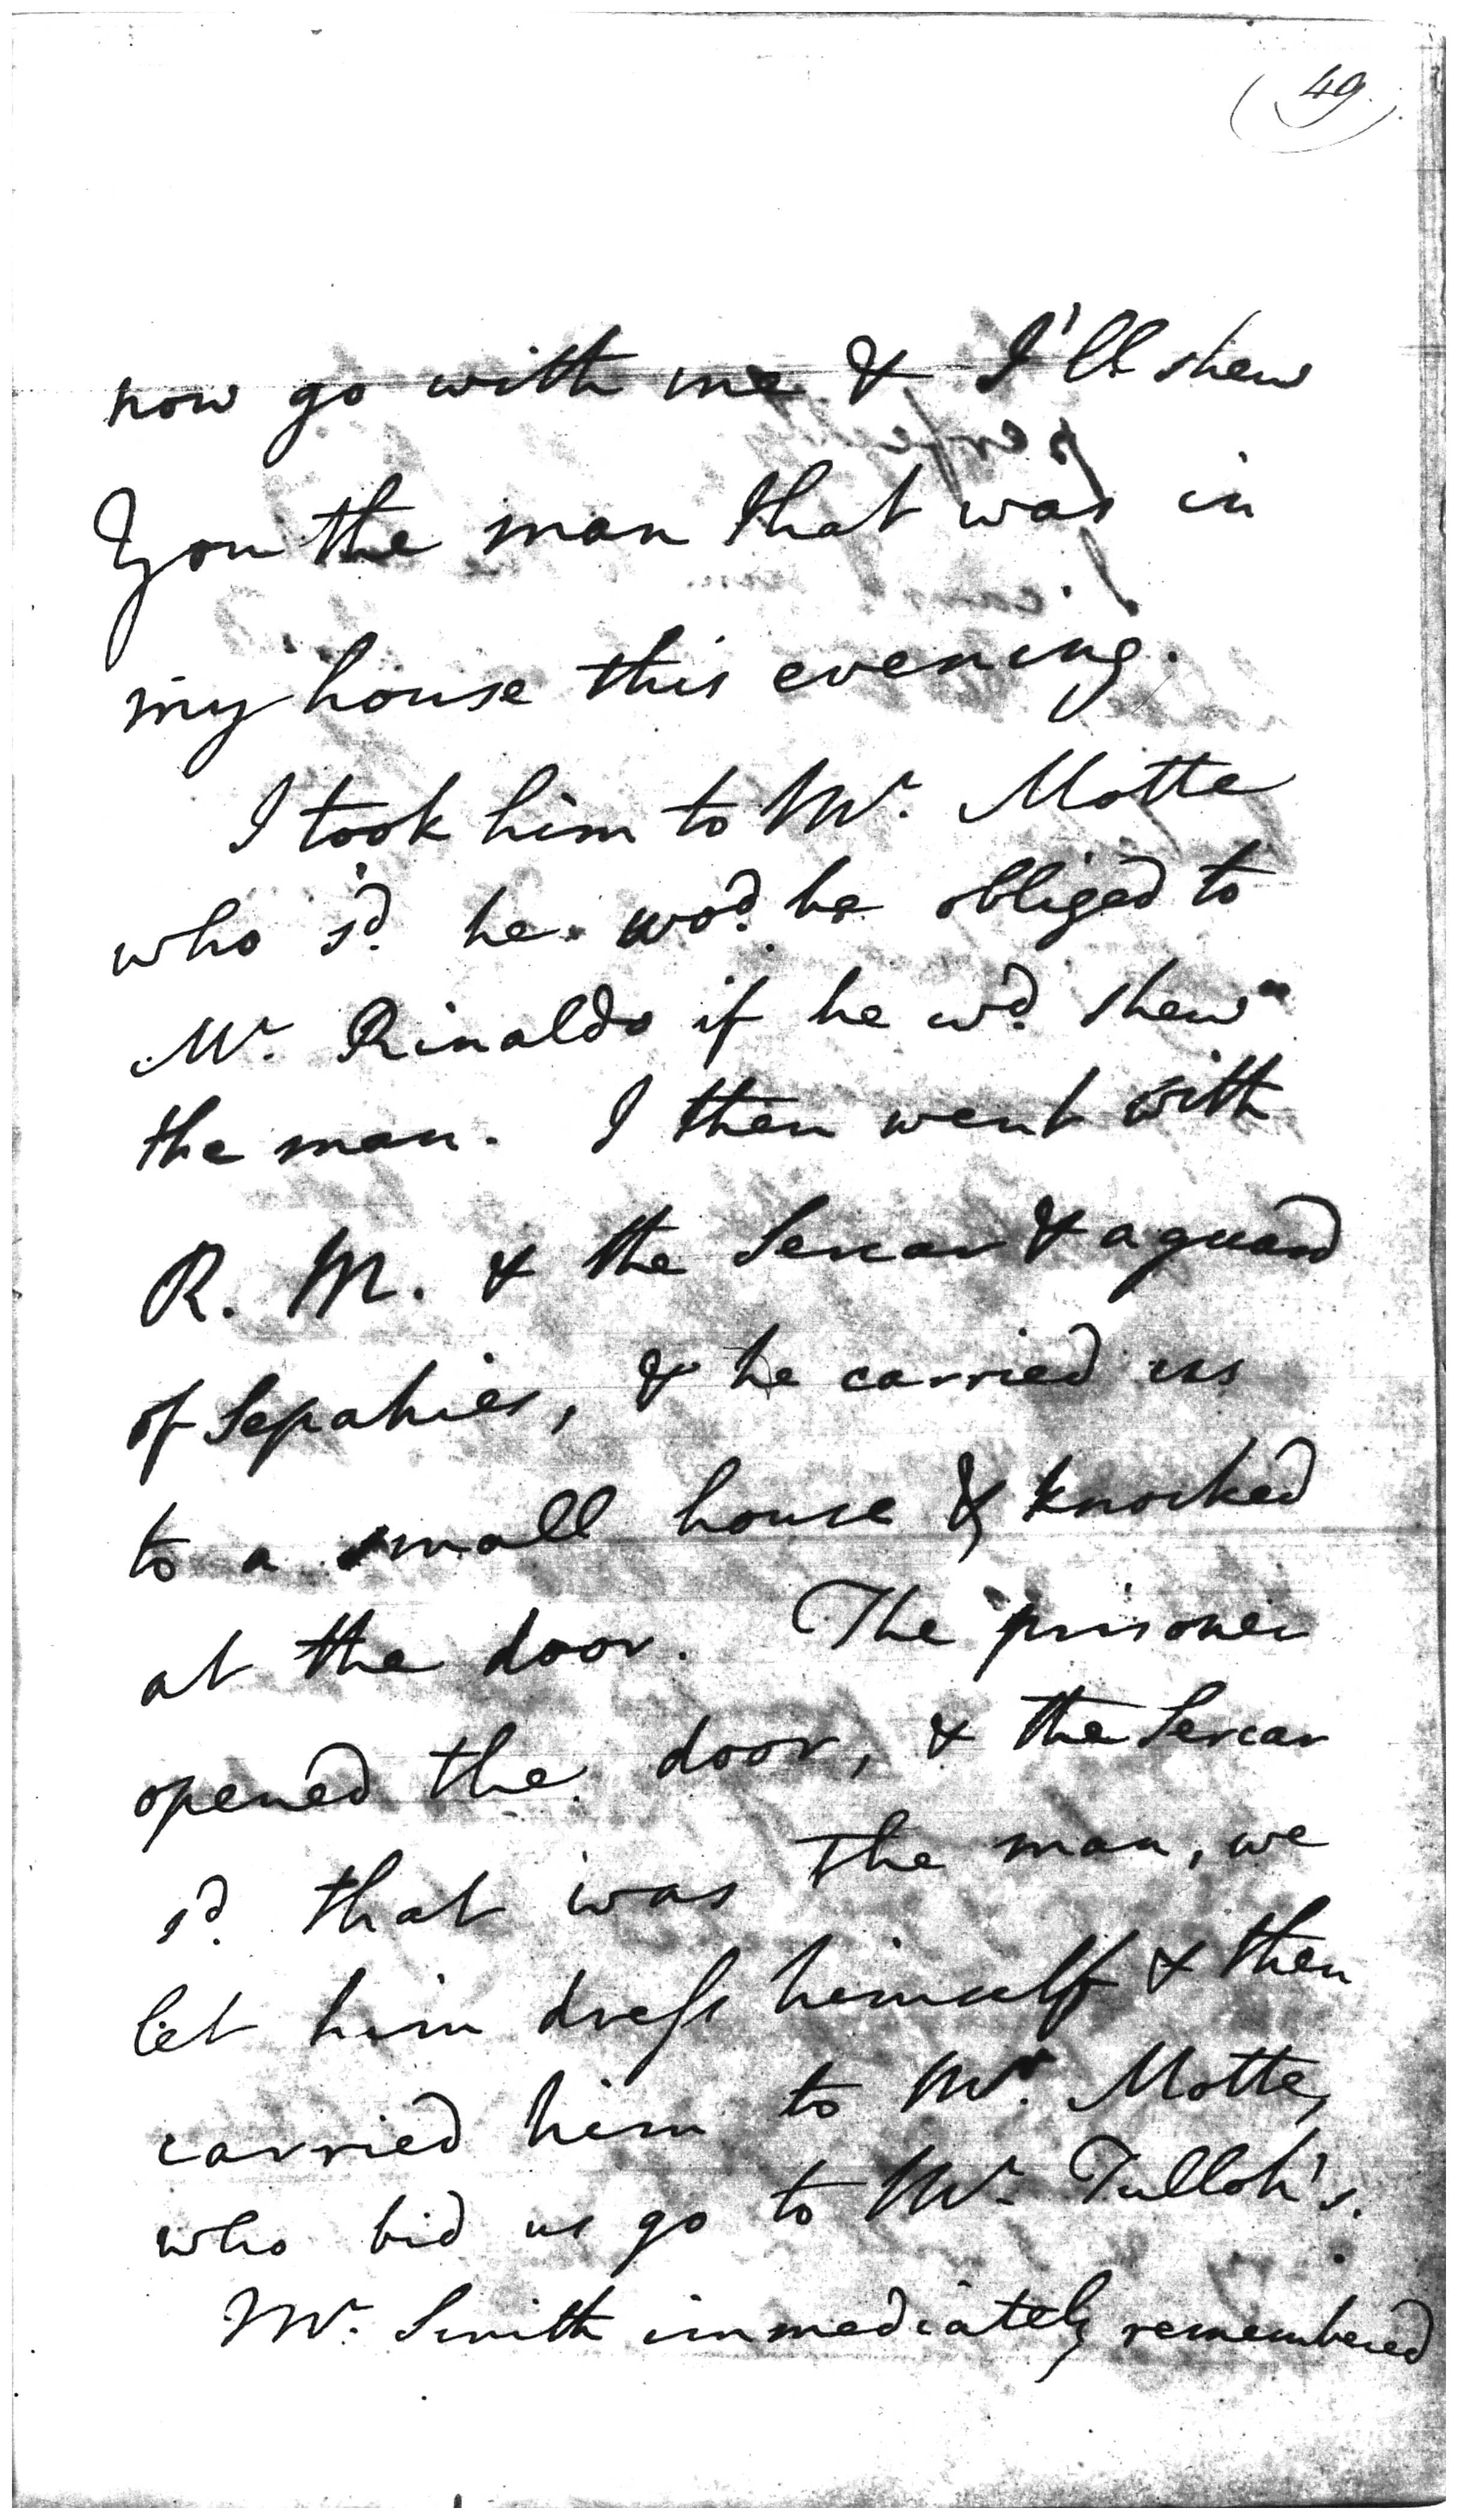 (49)
now go with me & I'll shew
You the man that was in
my house this evening.
I took him to Mr. Motte
who s'd. he wo'd. be obliged to
Mr. Rinaldo if he w'd. shew
the man. I then went with
R. M. & the Sercar & a guard
of Sepahies, & he carried us
to a small house & knocked
at the door. The prisoner
opened the door, & the Sercar
s'd. that was the man, we
let him dress himself & then
carried him to Mr. Motte,
who bid us go to Mr. Tulloh's.
Mr. Smith immediately remembered